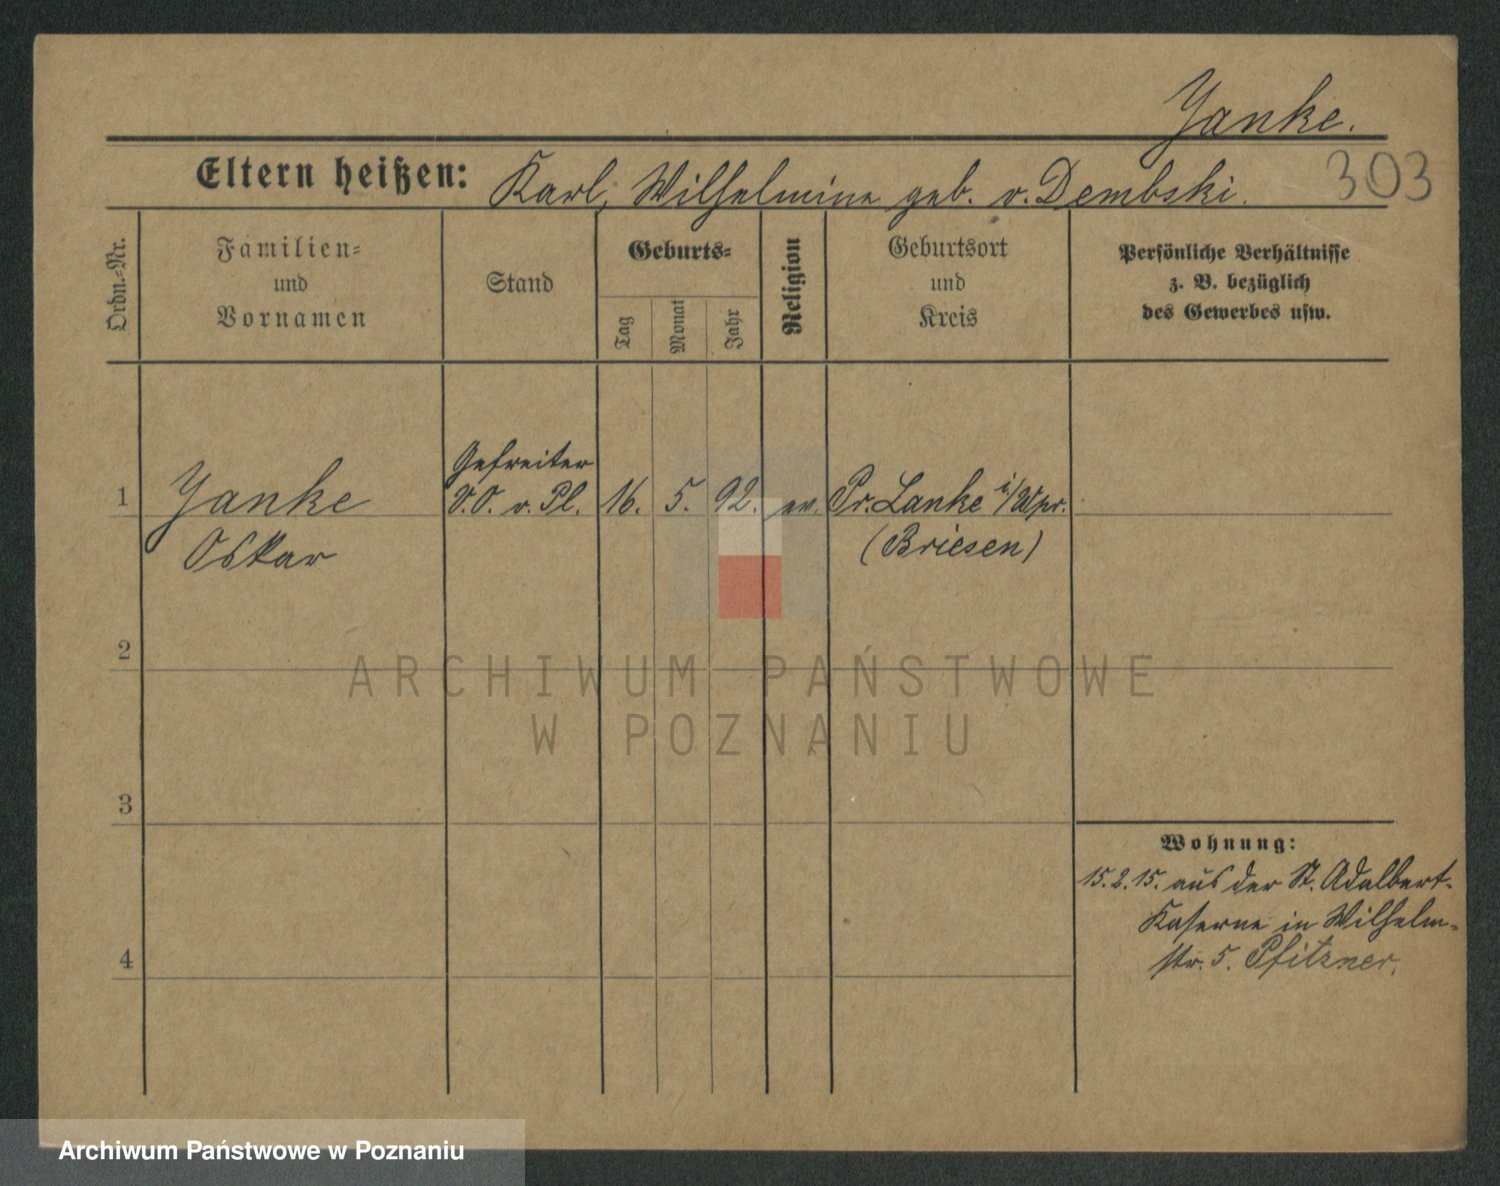 Janke.
303
Eltern heißen: Karl, Wilhelmine geb. v. Dembski.
Ordn.-Nr.
Familien-
und
Vornamen
Stand
Geburts-
Tag
Monat
Jahr
Religion
Geburtsort
und
Kreis
Persönliche Verhältnisse
z. B. bezüglich
des Gewerbes usw.
Gefreiter
1 Janke V.O. v. Pl. 16. 5. 92. ev. Pr. Lanke i/Wpr.
Oskar (Briesen)
2
ARCHIWUM PAŃSTWOWE
W POZNANIU
3
Wohnung:
15.2.15. aus der St. Adalbert-
Kaserne in Wilhelm-
str. 5. Pfitzner.
4
Archiwum Państwowe w Poznaniu